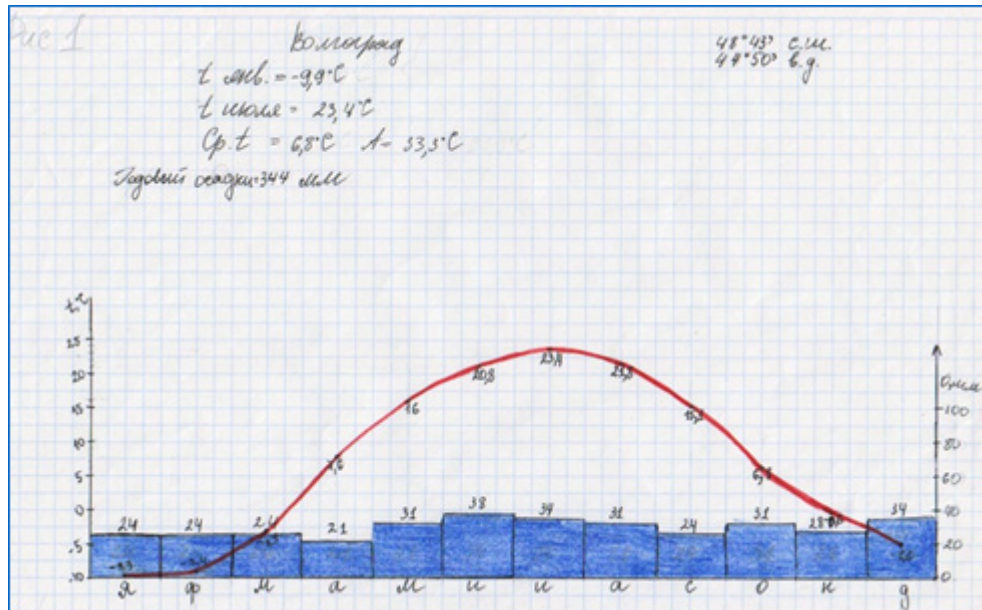 Рис 1
Волгоград
48°43' с.ш.
44°50' в.д.
t янв. = -9,9°C
t июля = 23,4°C
Ср. t = 6,8°C А= 33,3°C
Годовый осадки=344 мм
25
20
15
10
5
0
-5
-10
О,мм
100
80
60
40
20
0
7,6
16
20,8
23,4
15,3
24
24
24
21
31
38
34
31
24
31
28
34
я ф м а м и и а с о н д